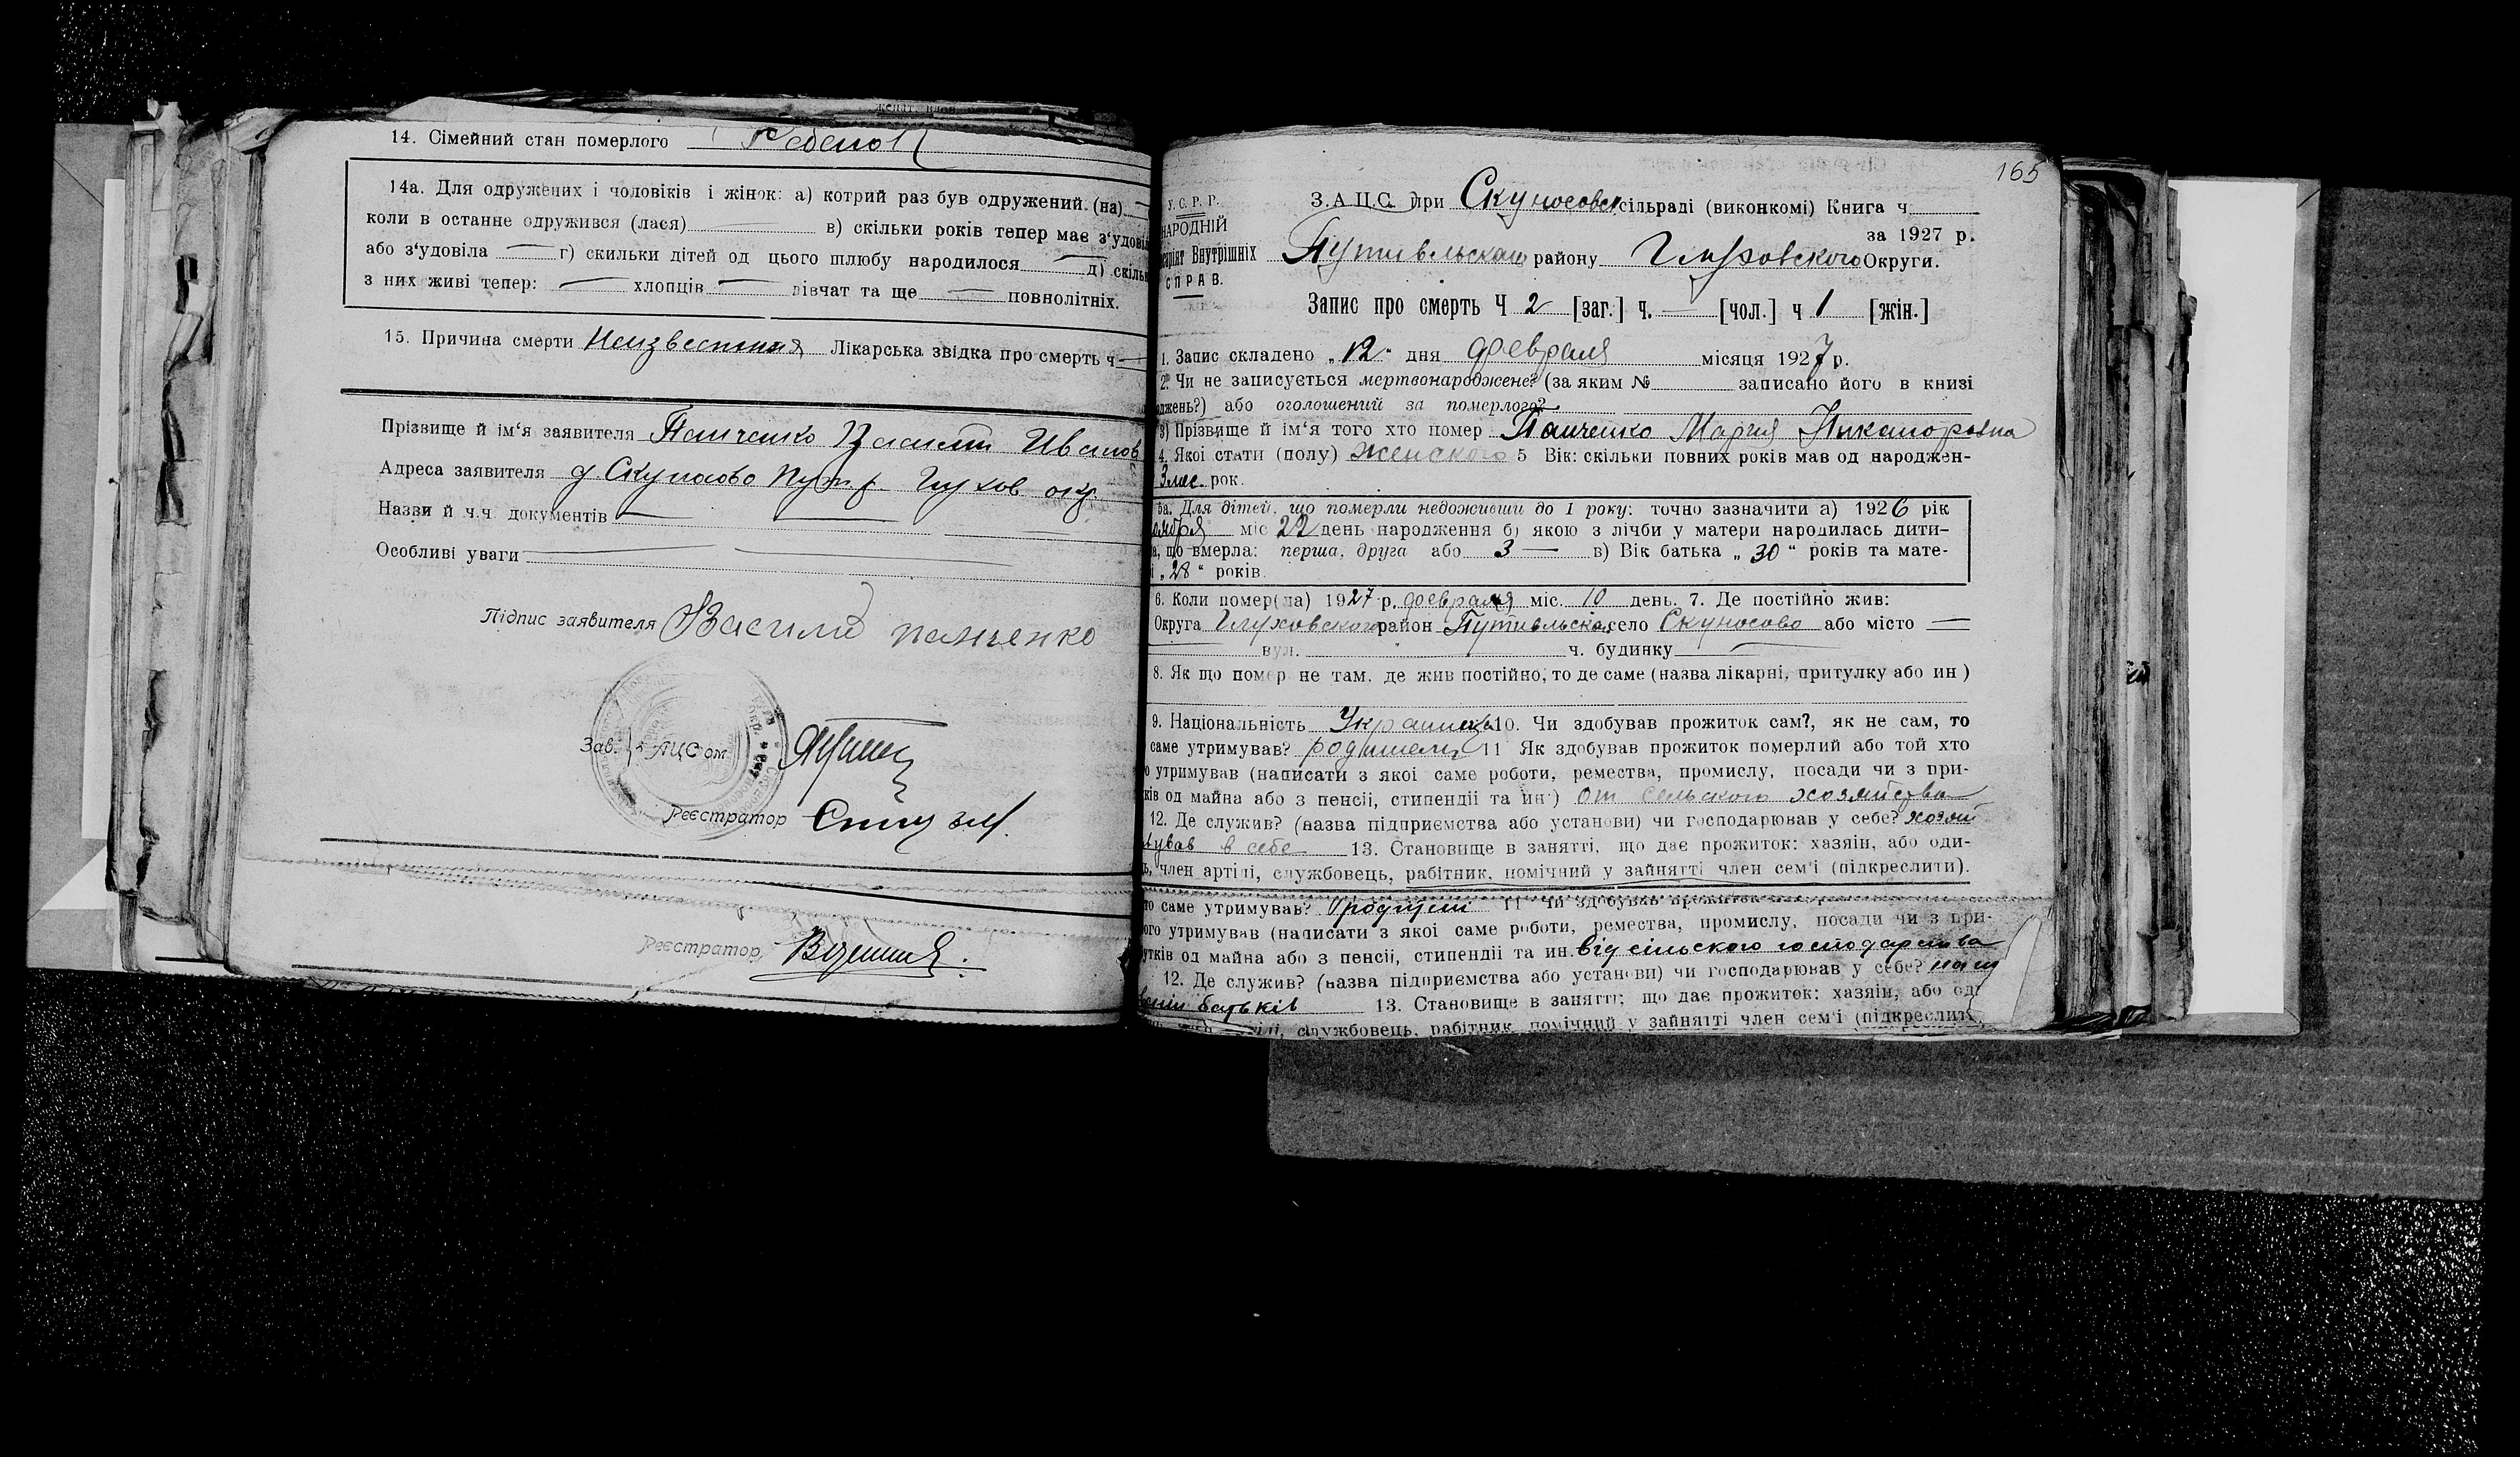 14. Сімейний стан померлого Ребенок
14а. Для одружених і чоловіків і жінок: а) котрий раз був одружений (на)
коли в останне одружився (лася) в) скільки років тепер має з‘удові
або з‘удовіла г) скильки дітей од цього шлюбу народилося д) скільк
з них живі тепер: хлопців дівчат та ще повнолітніх.
15. Причина смерти Неизвестная Лікарська звідка про смерть ч
Прізвище й ім‘я заявителя Панченко Василий Иванов
Адреса заявителя д. Скуносово Пут. р. Глухов окр
Назви й ч.ч документів
Особливі уваги
Підпис заявителя Василий панченко
Зав. ЗАЦСом
Реєстратор
Реєстратор
165
У. С. Р. Р. З.А.Ц.С. при Скуносовск сільраді (виконкомі) Книга ч.
НАРОДНІЙ за 1927 р.
саріят Внутрішніх Путивльского району Глуховского Округи.
СПРАВ.
Запис про смерть Ч 2 [заг.] ч. — [чол.] ч 1 [жін.]
1. Запис складено „12“ дня февраля місяця 1927 р.
2. Чи не записується мертвонароджене? (за яким № записано його в книзі
джень?) або оголошений за померлого?
3) Прізвище й ім‘я того хто помер Панченко Мария Никаноровна
4. Якої стати (полу) женского 5 Вік: скільки повних років мав од народжен-
3 мес. рок.
5а. Для дітей, що померли недоживши до 1 року: точно зазначити а) 1926 рік
оября міс 22 день народження б) якою з лічби у матери народилась дити-
а, що вмерла: перша, друга або 3 — в) Вік батька „30“ років та мате-
і „28“ років.
6. Коли помер(ла) 1927 р. февраля міс. 10 день. 7. Де постійно жив:
Округа Глуховского район Путивльский село Скуносово або місто —
вул. ч. будинку
8. Як що помер не там, де жив постійно, то де саме (назва лікарні, притулку або ин )
9. Національність Украинка 10. Чи здобував прожиток сам?, як не сам, то
саме утримував? родители 11 Як здобував прожиток померлий або той хто
о утримував (написати з якої саме роботи, ремества, промислу, посади чи з при-
ків од майна або з пенсії, стипендії та ин ) от сельского хозяйства
12. Де служив? (назва підприємства або установи) чи господарював у себе? хозяй
нував в себе 13. Становище в занятті, що дає прожиток: хазяін, або оди-
ь, член артілі, службовець, рабітник, помічний у зайнятті член сем‘ї (підкреслити).
то саме утримував? родители 11 Чи здобував прожиток
ого утримував (написати з якої саме роботи, ремества, промислу, посади чи з при-
утків од майна або з пенсії, стипендії та ин. від сільского господарства
12. Де служив? (назва підприємства або установи) чи господарював у себе?
батьків 13. Становище в занятті; що дає прожиток: хазяін, або оди
службовець, рабітник, помічний у зайнятті член сем‘ї (підкреслити